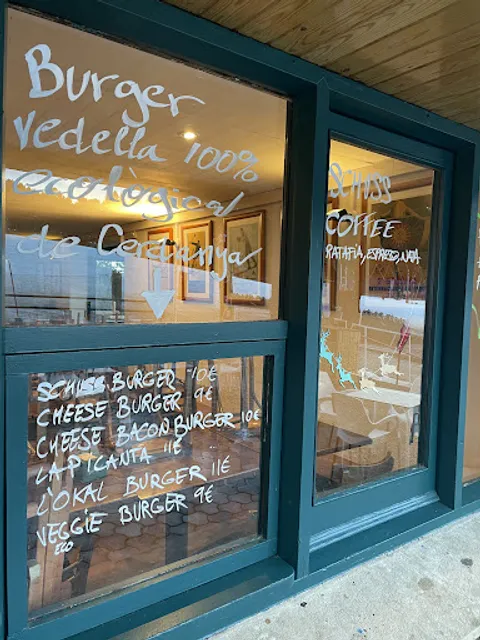 Burger
Vedella 100%
ecològica
de Cerdanya
SCHUSS BURGER 10€
CHEESE BURGER 9€
CHEESE BACON BURGER 10€
LA PICANTA 11€
L'OKAL BURGER 11€
VEGGIE BURGER 9€
ECO
SCHUSS
COFFEE
RATAFIA, ESPRESSO, NATA